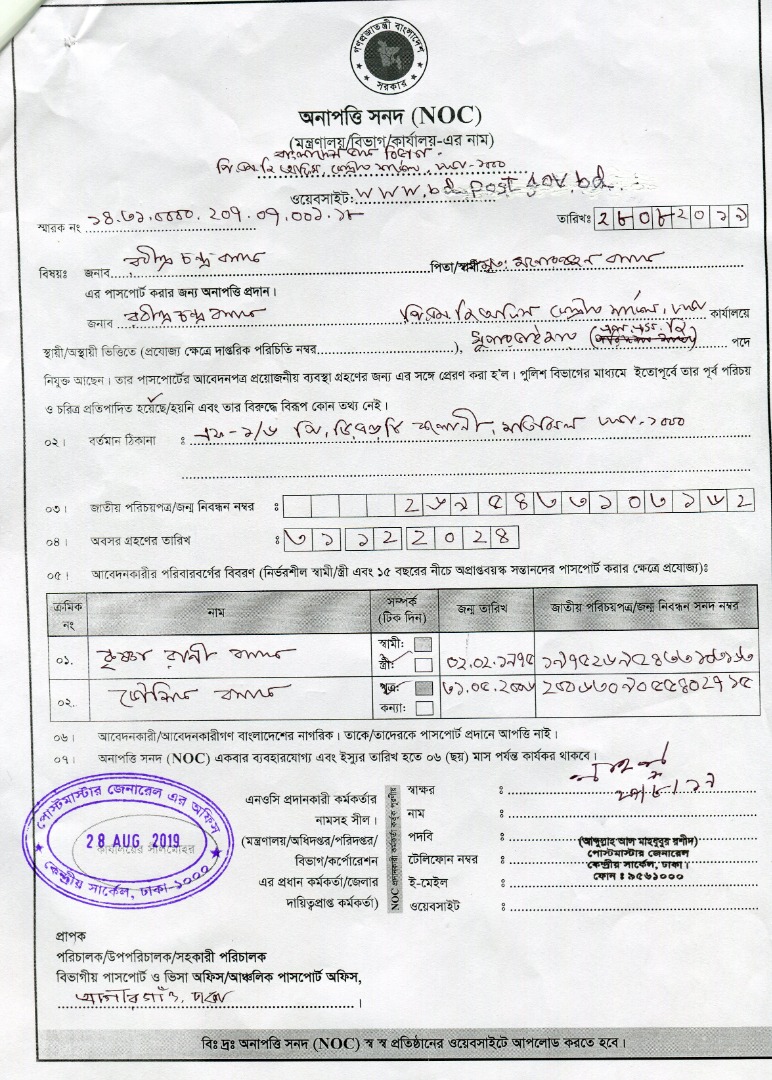 গণপ্রজাতন্ত্রী বাংলাদেশ
সরকার
অনাপত্তি সনদ (NOC)
(মন্ত্রণালয়/বিভাগ/কার্যালয়-এর নাম)
বাংলাদেশ ডাক বিভাগ
পি.এম.জি অফিস, কেন্দ্রীয় সার্কেল, ঢাকা-১০০০
ওয়েবসাইট: www.bd post gov.bd.
স্মারক নং ১৪.৩১.০০০০.২০৭.০৭.০০১.১৮ তারিখঃ ২৮০৮২০১৯
বিষয়ঃ জনাব রবীন্দ্র চন্দ্র পিতা/স্বামী মৃত:
এর পাসপোর্ট করার জন্য অনাপত্তি প্রদান।
জনাব রবীন্দ্র চন্দ্র পি.এম.জি অফিস কেন্দ্রীয় সার্কেল, ঢাকা কার্যালয়ে
স্থায়ী/অস্থায়ী ভিত্তিতে (প্রযোজ্য ক্ষেত্রে দাপ্তরিক পরিচিতি নম্বর), সুপারভাইজার (এস.এস. পদে
নিযুক্ত আছেন। তার পাসপোর্টের আবেদনপত্র প্রয়োজনীয় ব্যবস্থা গ্রহণের জন্য এর সঙ্গে প্রেরণ করা হ'ল। পুলিশ বিভাগের মাধ্যমে ইতোপূর্বে তার পূর্ব পরিচয়
ও চরিত্র প্রতিপাদিত হয়েছে/হয়নি এবং তার বিরুদ্ধে বিরূপ কোন তথ্য নেই।
০২। বর্তমান ঠিকানা : এফ-১/৬ জি, টিএন্ডটি কলোনী, মতিঝিল ঢাকা-১০০০
০৩। জাতীয় পরিচয়পত্র/জন্ম নিবন্ধন নম্বর ঃ ২৬৯৫৪৩৩১০৩১৬২
০৪। অবসর গ্রহণের তারিখ ঃ ৩১১২২০২৪
০৫। আবেদনকারীর পরিবারবর্গের বিবরণ (নির্ভরশীল স্বামী/স্ত্রী এবং ১৫ বছরের নীচে অপ্রাপ্তবয়স্ক সন্তানদের পাসপোর্ট করার ক্ষেত্রে প্রযোজ্য)ঃ
ক্রমিক নং নাম সম্পর্ক (টিক দিন) জন্ম তারিখ জাতীয় পরিচয়পত্র/জন্ম নিবন্ধন সনদ নম্বর
০১. কৃষ্ণা রানী স্বামী: স্ত্রী: ০২.০২.১৯৭৫
০২. পুত্র: কন্যা:
০৬। আবেদনকারী/আবেদনকারীগণ বাংলাদেশের নাগরিক। তাকে/তাদেরকে পাসপোর্ট প্রদানে আপত্তি নাই।
০৭। অনাপত্তি সনদ (NOC) একবার ব্যবহারযোগ্য এবং ইস্যুর তারিখ হতে ০৬ (ছয়) মাস পর্যন্ত কার্যকর থাকবে।
পোস্টমাস্টার জেনারেল এর অফিস
28 AUG 2019
কার্যালয়ের সীলমোহর
কেন্দ্রীয় সার্কেল, ঢাকা-১০০০
এনওসি প্রদানকারী কর্মকর্তার
নামসহ সীল।
(মন্ত্রণালয়/অধিদপ্তর/পরিদপ্তর/
বিভাগ/কর্পোরেশন
এর প্রধান কর্মকর্তা/জেলার
দায়িত্বপ্রাপ্ত কর্মকর্তা)
NOC প্রদানকারী কর্মকর্তা কর্তৃক পূরণীয়
স্বাক্ষর ঃ
নাম ঃ
পদবি ঃ
টেলিফোন নম্বর ঃ
ই-মেইল ঃ
ওয়েবসাইট ঃ
(আব্দুল্লাহ আল মাহবুবুর রশীদ)
পোস্টমাস্টার জেনারেল
কেন্দ্রীয় সার্কেল, ঢাকা।
ফোন ঃ ৯৫৬১০০০
প্রাপক
পরিচালক/উপপরিচালক/সহকারী পরিচালক
বিভাগীয় পাসপোর্ট ও ভিসা অফিস/আঞ্চলিক পাসপোর্ট অফিস,
আগারগাঁও, ঢাকা।
বিঃ দ্রঃ অনাপত্তি সনদ (NOC) স্ব স্ব প্রতিষ্ঠানের ওয়েবসাইটে আপলোড করতে হবে।